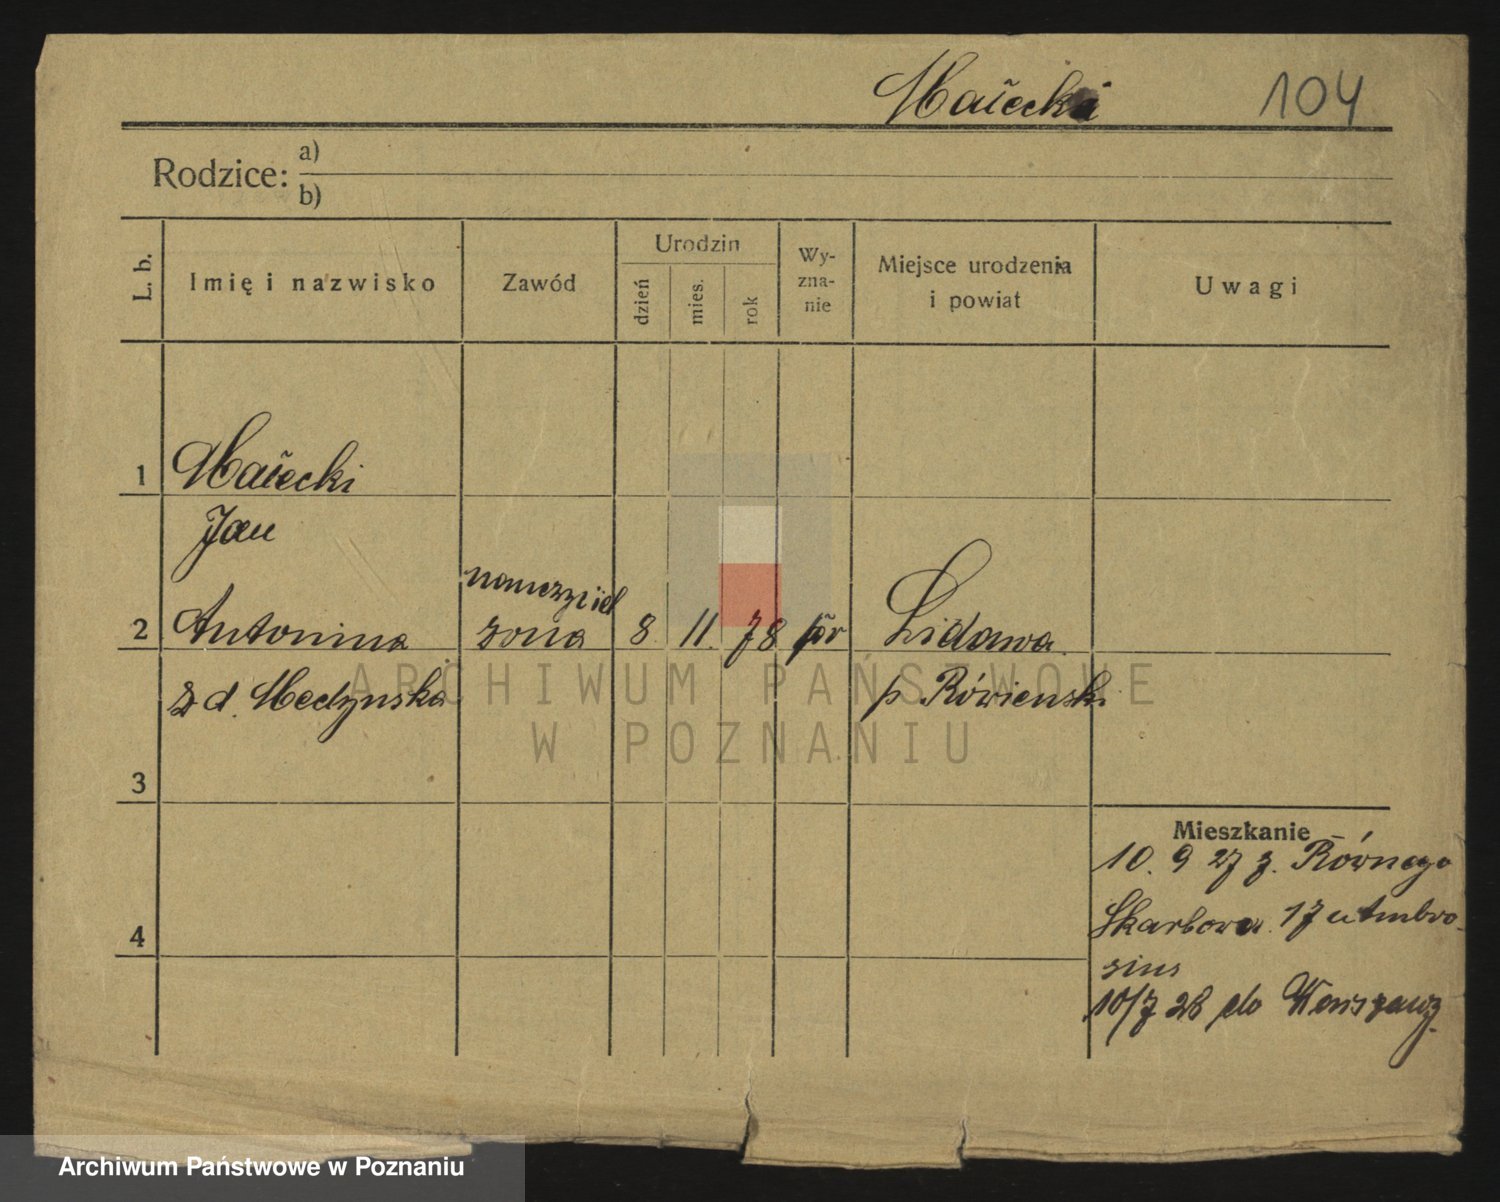 Małecki 104
Rodzice: a)
b)
L. b.
Imię i nazwisko
Zawód
Urodzin
dzień
mies.
rok
Wy-
zna-
nie
Miejsce urodzenia
i powiat
Uwagi
1 Małecki
Jan
nauczyciel
2 Antonina żona 8 11. 78 Lidawa
z d. Medyńska p. Rówieński
3
Mieszkanie
10. 9 27 z. Równego
Skarbowa 17 u Ambro-
4
zius
10/7 28 do Warszawy.
ARCHIWUM PAŃSTWOWE
W POZNANIU
Archiwum Państwowe w Poznaniu